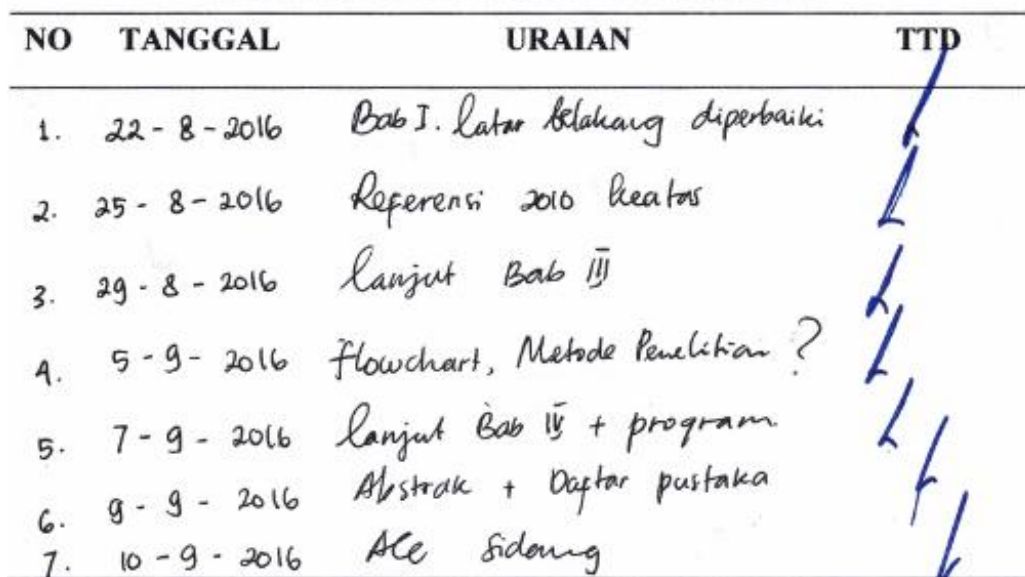 NO TANGGAL URAIAN TTD
1. 22 - 8 - 2016 Bab I. latar belakang diperbaiki
2. 25 - 8 - 2016 Referensi 2010 keatas
3. 29 - 8 - 2016 lanjut Bab III
4. 5 - 9 - 2016 flowchart, Metode Penelitian ?
5. 7 - 9 - 2016 lanjut Bab IV + program
6. 9 - 9 - 2016 Abstrak + Daftar pustaka
7. 10 - 9 - 2016 Acc Sidang